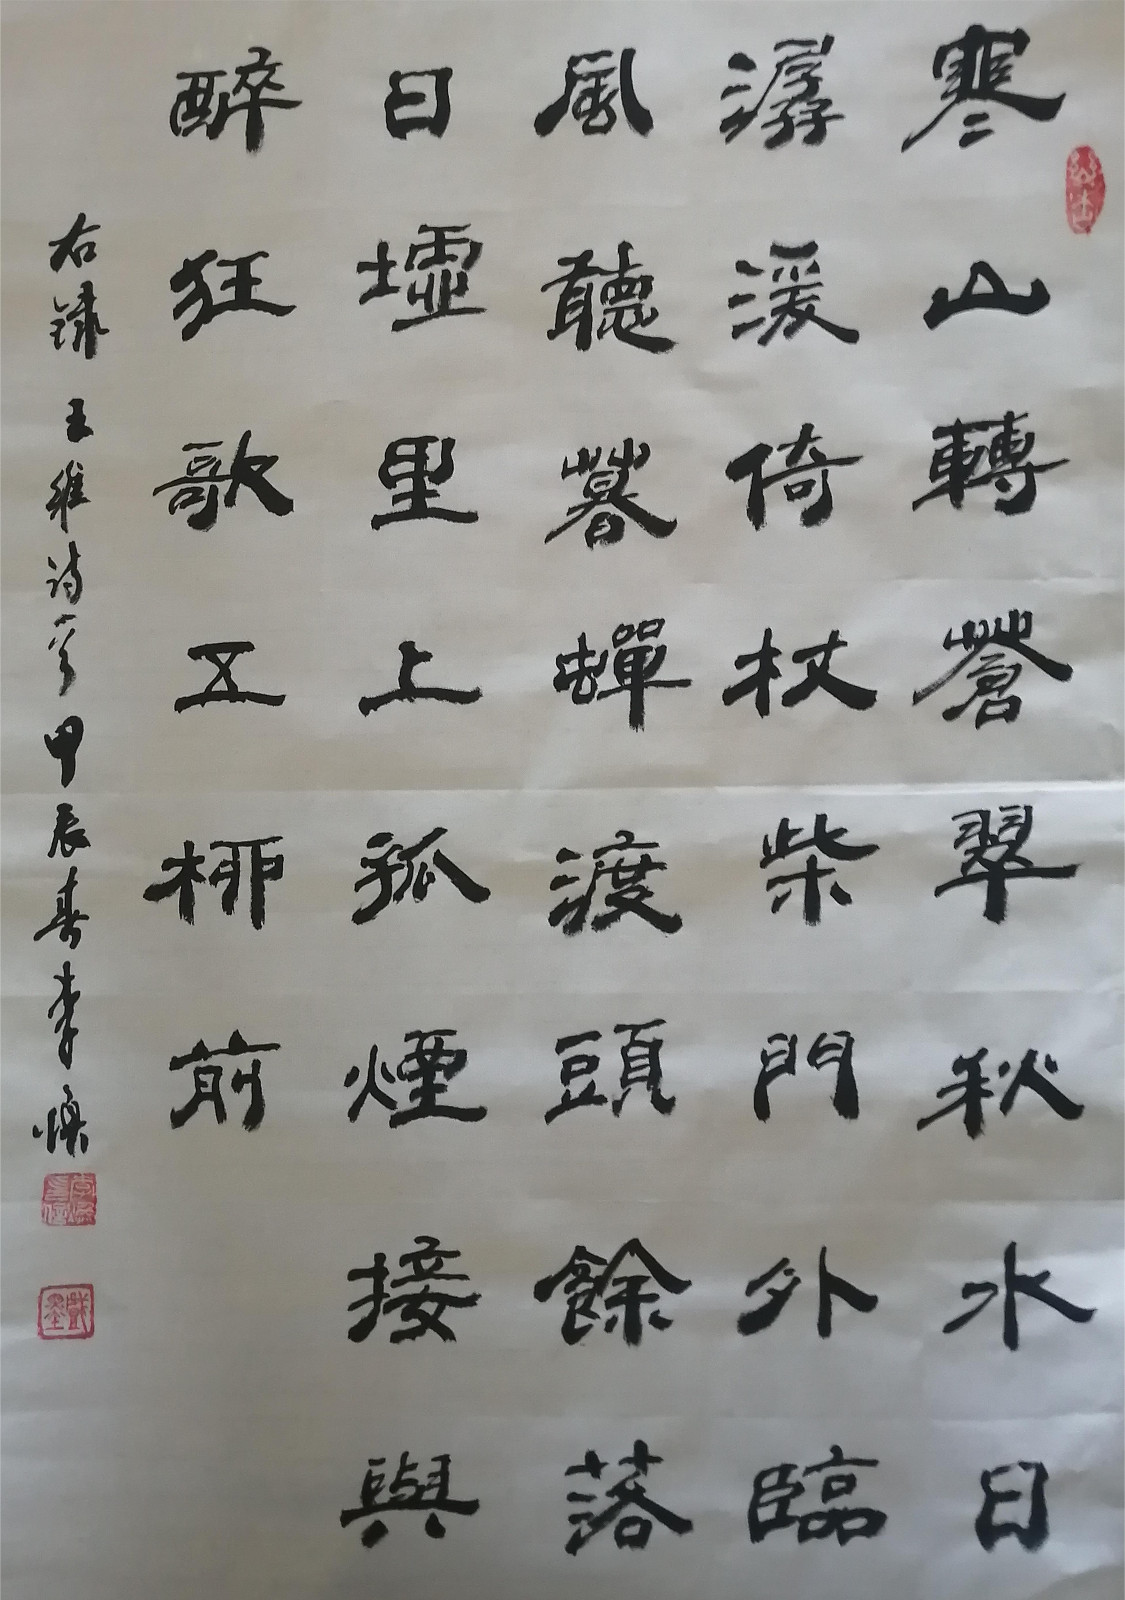 寒山轉蒼翠秋水日
潺湲倚杖柴門外臨
風聽暮蟬渡頭餘落
日墟里上孤煙接與
醉狂歌五柳前
右錄王維詩一首甲辰春李煥